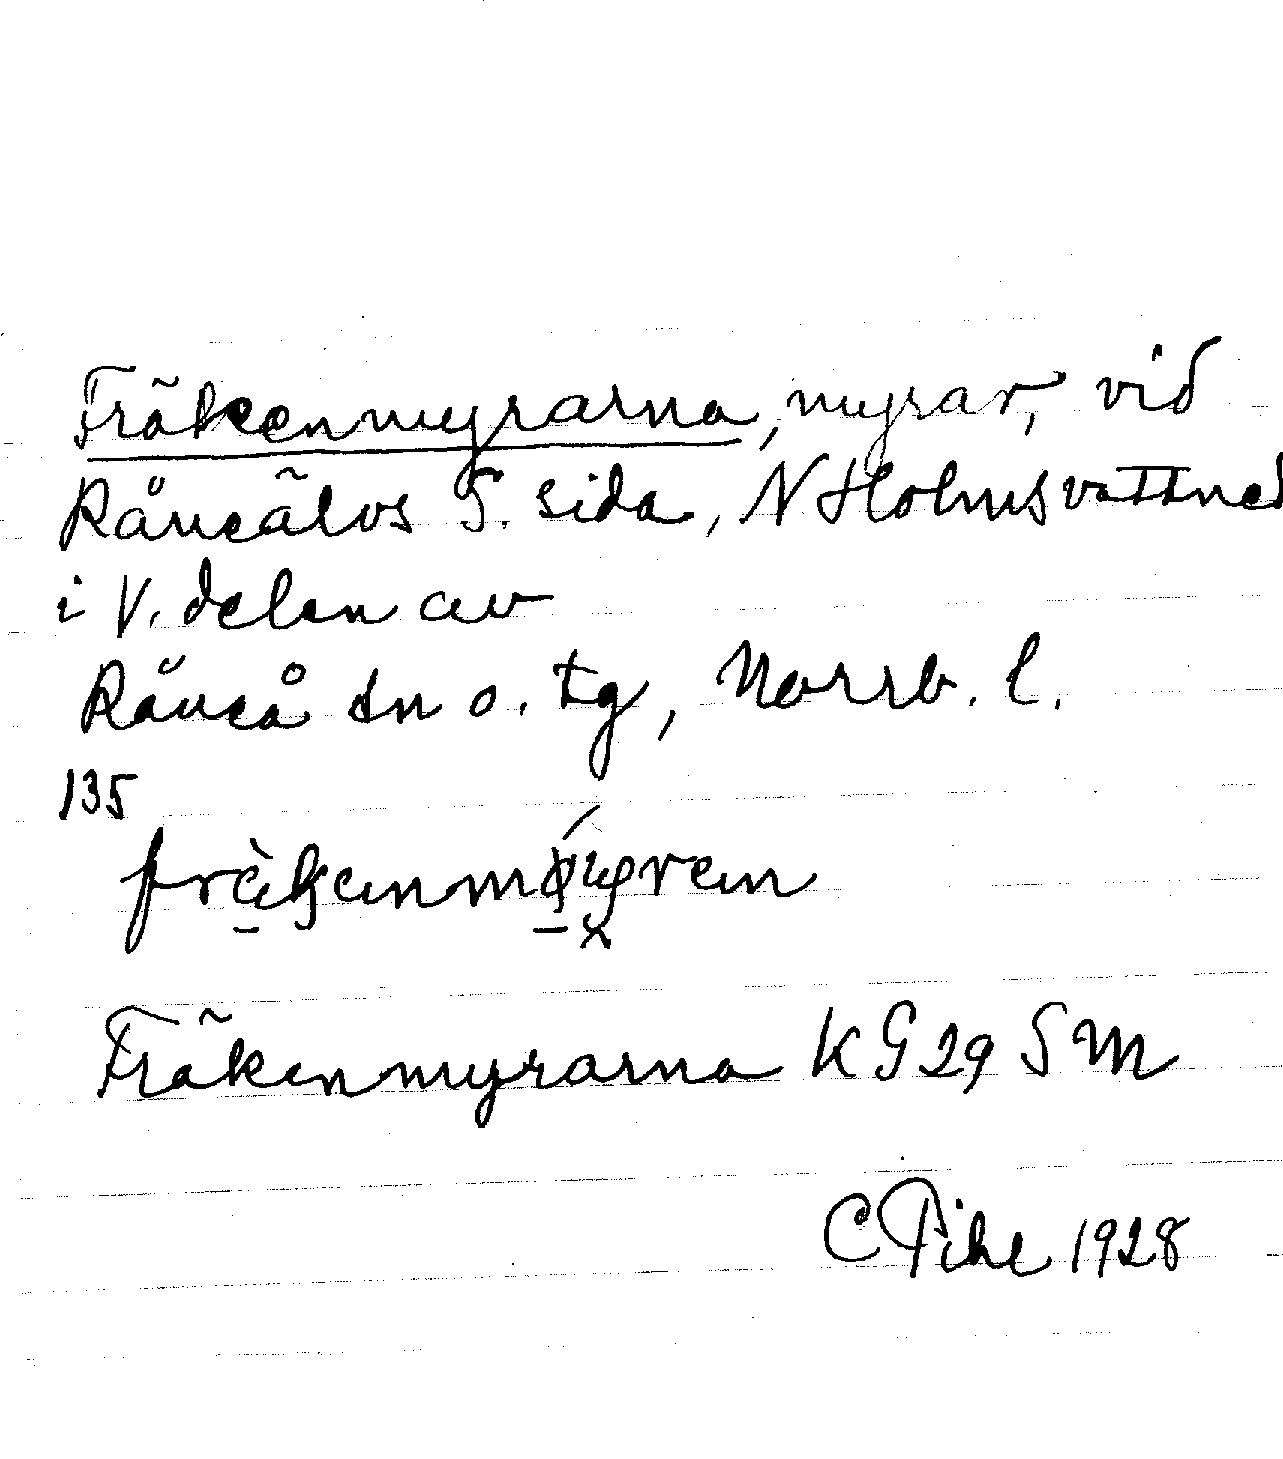 Fräkenmyrarna, myrar, vid
Råneälvs S. sida, N Holmsvattnet
i V. delen av
Råneå sn o. tg, Norrb. l.
135
Fräkenmyrarna KG29 SM
C Pihl 1928